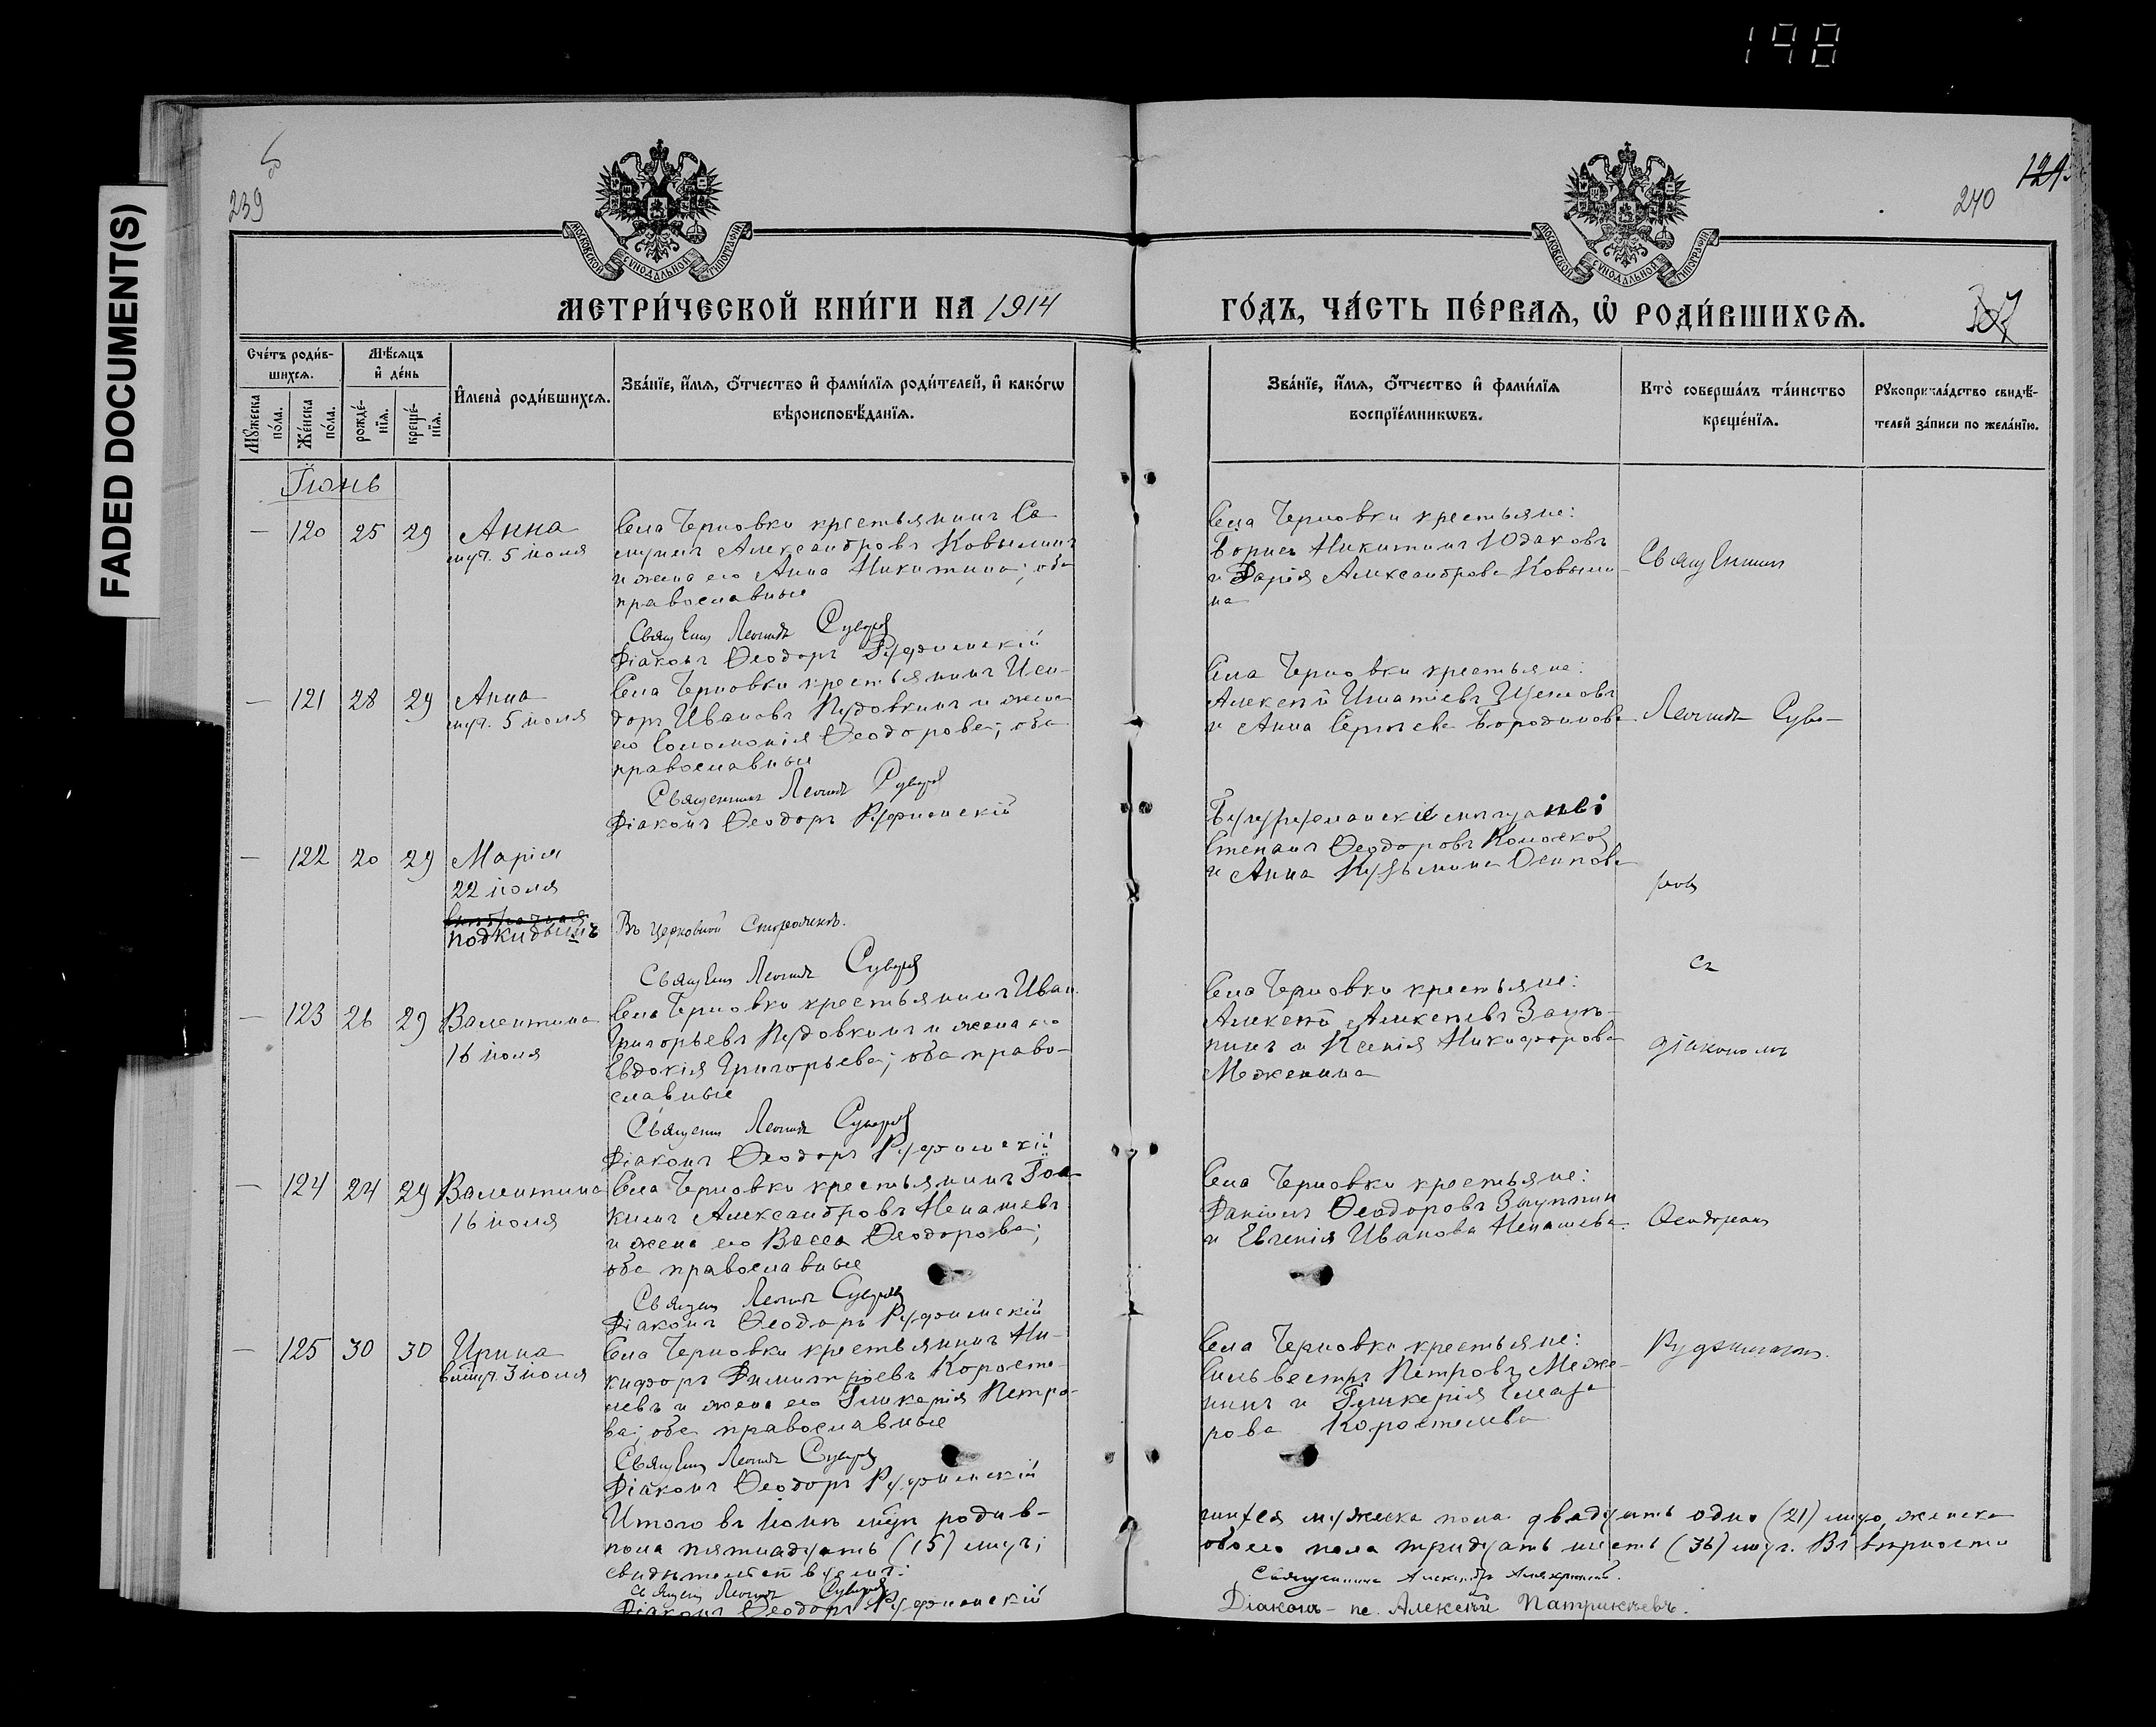 198
FADED DOCUMENT(S)
239
240
МОСКОВСКОЙ СѴНОДАЛЬНОЙ ТИПОГРАФІИ
МОСКОВСКОЙ СѴНОДАЛЬНОЙ ТИПОГРАФІИ
МЕТРИ́ЧЕСКОЙ КНИ́ГИ НА 1914
ГО́ДЪ, ЧА́СТЬ ПЕ́РВАѦ, Ѡ҆ РОДИ́ВШИХСѦ.
Сче́тъ роди́в-
шихсѧ.
Мꙋжеска по́ла.
Же́нска по́ла.
Мѣ́сѧцъ
и҆ де́нь
рожде́-
нїѧ.
креще́-
нїѧ.
И҆мена̀ роди́вшихсѧ.
Зва́нїе, и҆́мѧ, ѻ҆́тчество и҆ фами́лїѧ роди́телей, и҆ како́гѡ
вѣроисповѣ́данїѧ.
Зва́нїе, и҆́мѧ, ѻ҆́тчество и҆ фами́лїѧ
воспрїе́мникѡвъ.
Кто̀ соверша́лъ та́инство
креще́нїѧ.
Рꙋкоприкла́дство свидѣ́-
телей за́писи по жела́нїю.
Іюнь
— 120 25 29 Анна
муч. 5 іюля
Села Черновки крестьянинъ Са
муилъ Александровъ Ковылинъ
и жена его Анна Никитина; оба
православные
Священ Леонидъ Суворов
Діаконъ Ѳеодоръ Руфимскій
Села Черновки крестьяне:
Борисъ Никитинъ Юдаковъ
и Дарія Александрова Ковыли-
на
Священник
— 121 28 29 Анна
муч. 5 іюля
Села Черновки крестьянинъ Иси-
доръ Ивановъ Пудовкинъ и жена
его Соломонія Ѳеодорова; оба
православные
Священникъ Леонидъ Суворов
Діаконъ Ѳеодоръ Руфимскій
Села Черновки крестьяне:
Алексѣй Игнатіевъ Щегловъ
и Анна Сергѣева Бородинова
Леонидъ Суво-
— 122 20 29 Марія
22 іюля
подкидышъ
Въ церковной Сторожкѣ.
Священ Леонидъ Суворов
Степанъ Ѳеодоровъ
и Анна Кузьмина Осипова
ровъ
съ
— 123 26 29 Валентина
16 іюля
Села Черновки крестьянинъ Иван
Григорьевъ Пудовкинъ и жена его
Евдокія Григорьева; оба право-
славные
Священ Леонидъ Суворов
Діаконъ Ѳеодоръ Руфимскій
Села Черновки крестьяне:
Алексѣй Алексѣевъ Зацѣ-
пинъ и Ксенія Никифорова
Меженина
діакономъ
— 124 24 29 Валентина
16 іюля
Села Черновки крестьянинъ Іоа-
кимъ Александровъ Ненашевъ
и жена его Васса Ѳеодорова;
оба православные
Священ Леонидъ Суворов
Діаконъ Ѳеодоръ Руфимскій
Села Черновки крестьяне:
Даніилъ Ѳеодоровъ Зацѣпин
и Евгенія Иванова Ненашева
Ѳеодоромъ
— 125 30 30 Ирина
3 іюля
Села Черновки крестьянинъ Ни-
кифоръ Димитріевъ Коросте-
левъ и жена его Гликерія Петро-
ва; оба православные
Священ Леонидъ Суворов
Діаконъ Ѳеодоръ Руфимскій
Села Черновки крестьяне:
Сильвестръ Петровъ Меже-
нинъ и Гликерія
рова Коростелева
Руфимскимъ.
Итого въ Іюнѣ мцѣ родив-
шихся мужеска пола двадцать одно (21) лицо, женска
пола пятнадцать (15) лицъ;
обоего пола тридцать шесть (36) лицъ. Въ вѣрности
свидѣтельствуемъ:
Священ Леонидъ Суворов
Діаконъ Ѳеодоръ Руфимскій
Священникъ
Діаконъ-пс. Алексѣй Патрикѣевъ.